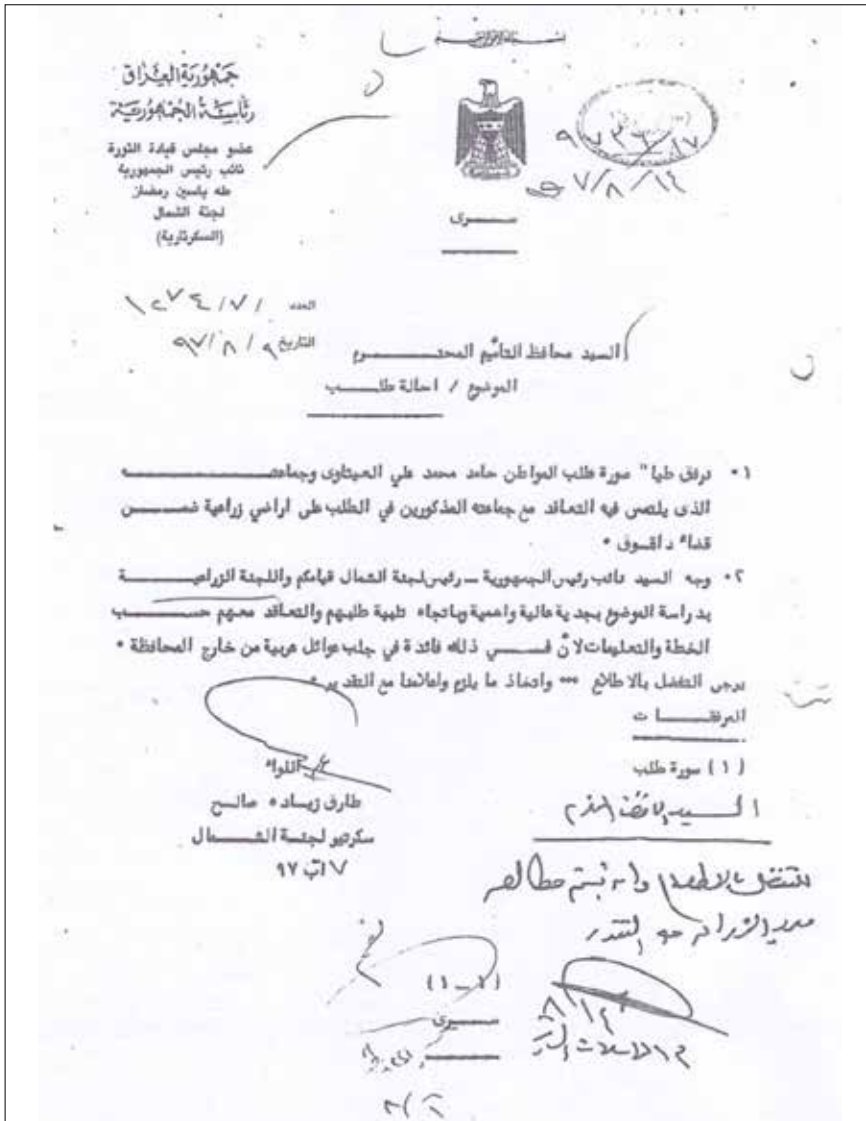 بسم الله الرحمن الرحيم
جمهورية العراق
رئاسة الجمهورية
عضو مجلس قيادة الثورة
نائب رئيس الجمهورية
طه ياسين رمضان
لجنة الشمال
(السكرتارية)
٩٧/٨/١٤
سرى
العدد ١٢٧٤/٧/
التاريخ ٩٧/٨/٩
السيد محافظ التأميم المحترم
الموضوع / احالة طلب
١٠ نرفق طيا" صورة طلب المواطن حامد محمد علي العيثاوى وجماعته
الذى يلتمس فيه التعاقد مع جماعته المذكورين في الطلب على اراضي زراعية ضمن
قضاء داقوق ٠
٢٠ وجه السيد نائب رئيس الجمهورية ــ رئيس لجنة الشمال قيامكم واللجنة الزراعية
بدراسة الموضوع بجدية عالية واهمية وباتجاه تلبية طلبهم والتعاقد معهم حسب
الخطة والتعليمات لأن في ذلك فائدة في جلب عوائل عربية من خارج المحافظة ٠
يرجى التفضل بالاطلاع ٠٠٠ واتخاذ ما يلزم واعلامنا مع التقدير ٠
المرفقات
(١) صورة طلب
اللواء
طارق زياده صالح
سكرتير لجنة الشمال
٧ آب ٩٧
السيد المحافظ المحترم
للتفضل بالاطلاع
مع التقدير
(١ــ١)
سرى